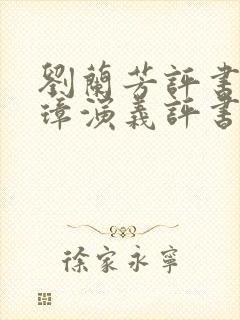 劉蘭芳評書
璋演義評書
徐家永寧